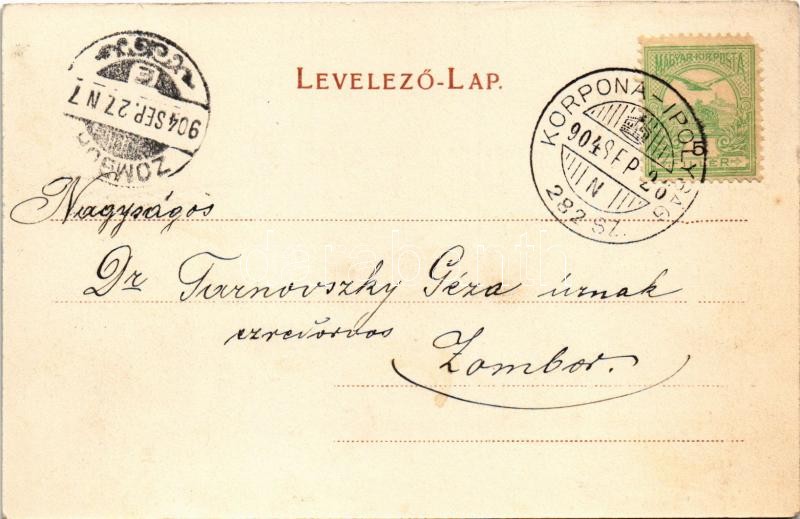 LEVELEZŐ-LAP.
MAGYAR·KIR·POSTA
5
ZOMBOR
904 SEP. 27. N 7
E
KORPONA-IPOLYSÁG
904 SEP 26
N
282 SZ.
Nagyságos
Dr Tarnovszky Géza úrnak
ezredorvos
Zombor.
darabanth